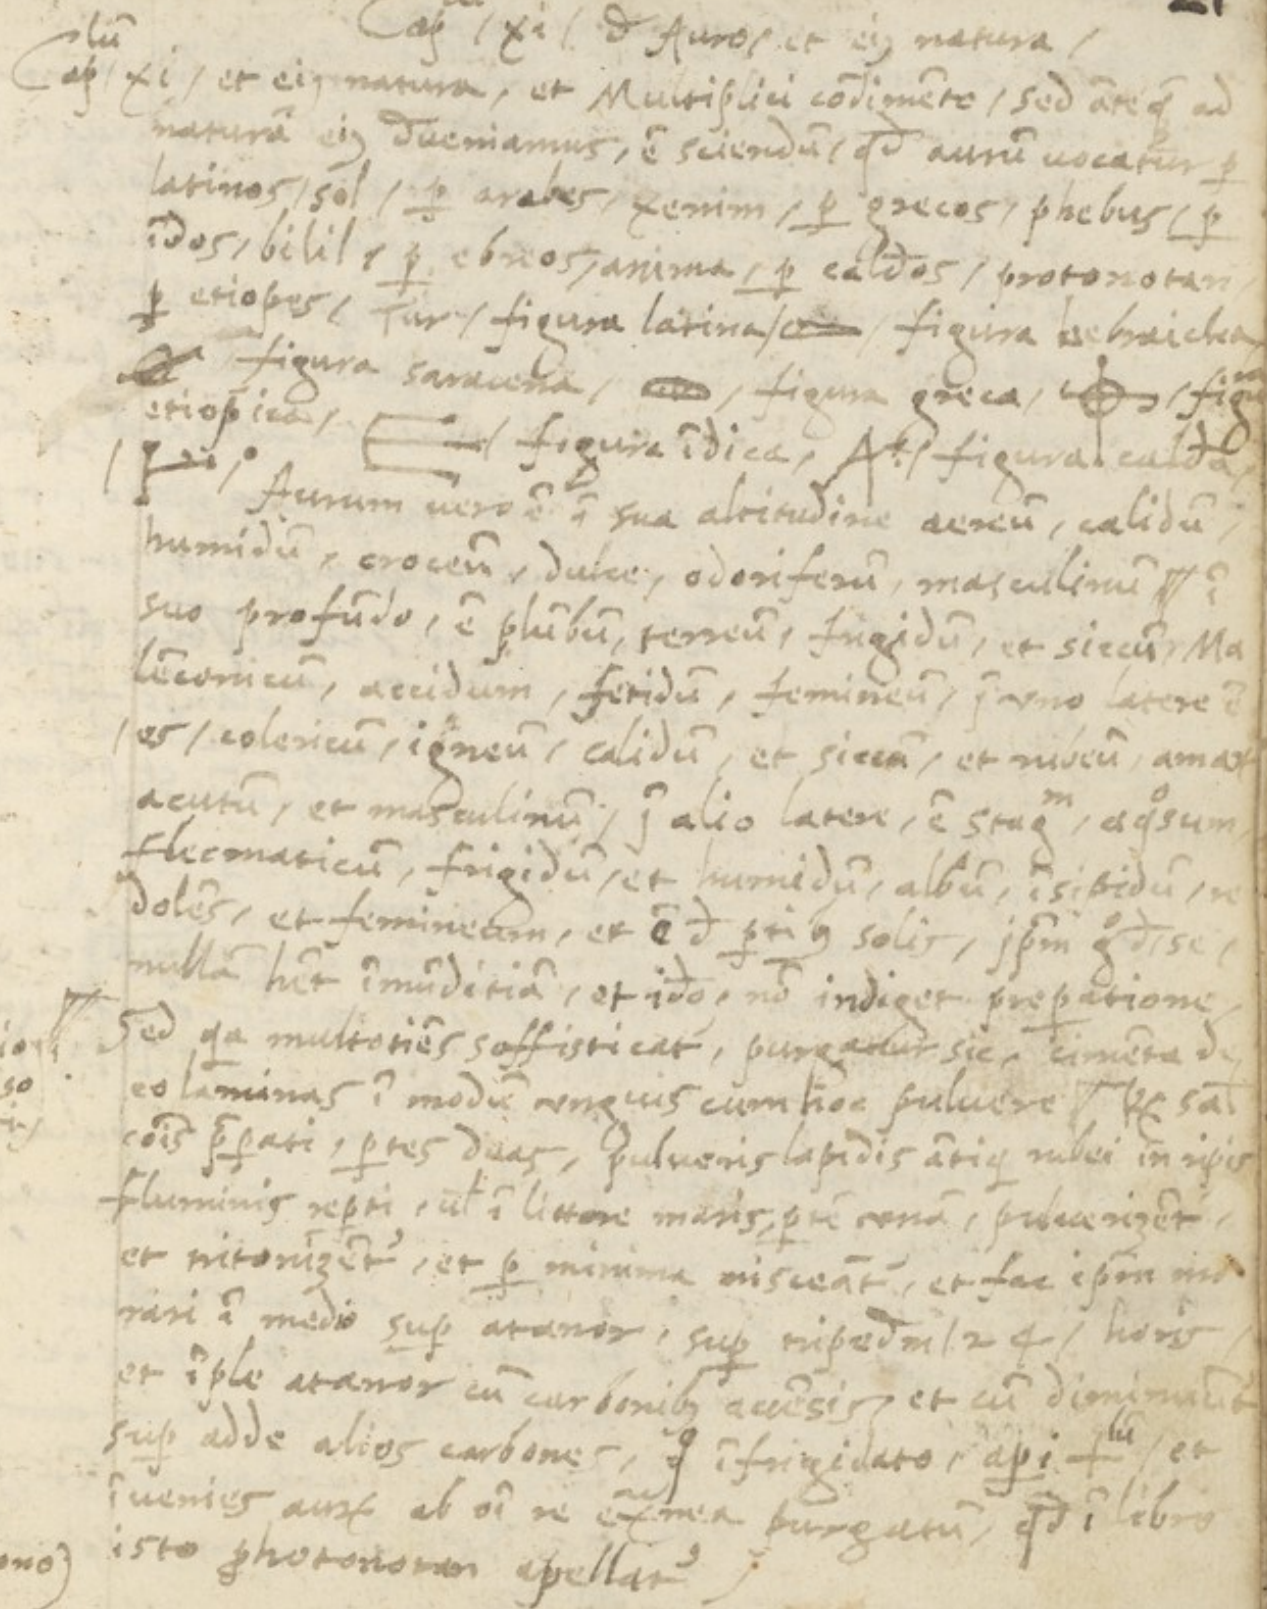 Cap̃ / xi / đ Auro, et ei9 natura /
Cap̃lũ / xi / et ei9 natura, et Multiplici cõdimẽto / sed ãteq̃ ad
naturã ei9 đueniamus, ẽ sciendũ / qđ aurũ uocatur p̱
latinos / sol / p̱ arabes / xenim / p̱ grecos / phebus / p̱
ĩdos / bilil / p̱ ebreos, anima, p̱ calđos / protonotan,
p̱ etiopes / Tur / figura latina / / figura hebraicha
/ figura saracena / , figura greca / / figura
etiop̃ica, / figura ĩdica, / figura calđa,
Aurum uero ẽ ĩ sua altitudine aereũ, calidũ,
humidũ, croceũ, dulce, odoriferũ, masculinũ ĩ
suo profũdo, ẽ plũbũ, terreũ, frigidũ, et siccũ, Ma
lẽconicũ, accidum, fetidũ, femineũ / ȷ̃ uno latere ẽ
/ es / colericũ, igneũ / calidũ, et siccũ, et rubeũ, amar
acutũ, et masculinũ / ȷ̃ alio latere, ẽ stag̃m, aqºsum,
flecmaticũ, frigidũ, et humidũ, albũ, ĩsipidũ, re
dolẽs, et femineum, et ẽ đ p̱tib9 solis, ȷp̃m gº đ se,
nullã hẽt ĩmũditiã, et iđo, nõ indiget prep̱atione,
Sed qa multotiẽs soffisticat̃, purgatur sic, cimẽta de
eo laminas ĩ modũ unguis cum hoc puluere ℞ sal
cõis p̃p̱ati, p̱tes duas, pulueris lapidis ãtiq̃ rubei in ripis
fluminis rep̱ti, ul̃ ĩ littore maris, p̱tẽ unã, pulverizẽt̃,
et tritorizẽt̃, et p̱ minima misceãt̃, et fac ip̃m mo
rari ĩ medio sup̱ atanor, sup̱ tripeđm / 24 / horis /
et ĩple atanor cũ carbonib9 accẽsis, et cũ diminuũt̃
sup̱ adde alios carbones, qº ĩfrigidato, ap̱i +lũ / et
ĩuenies auꝝ ab õi re ex̃nea purgatũ, qđ ĩ libro
isto photonotan apellat̃